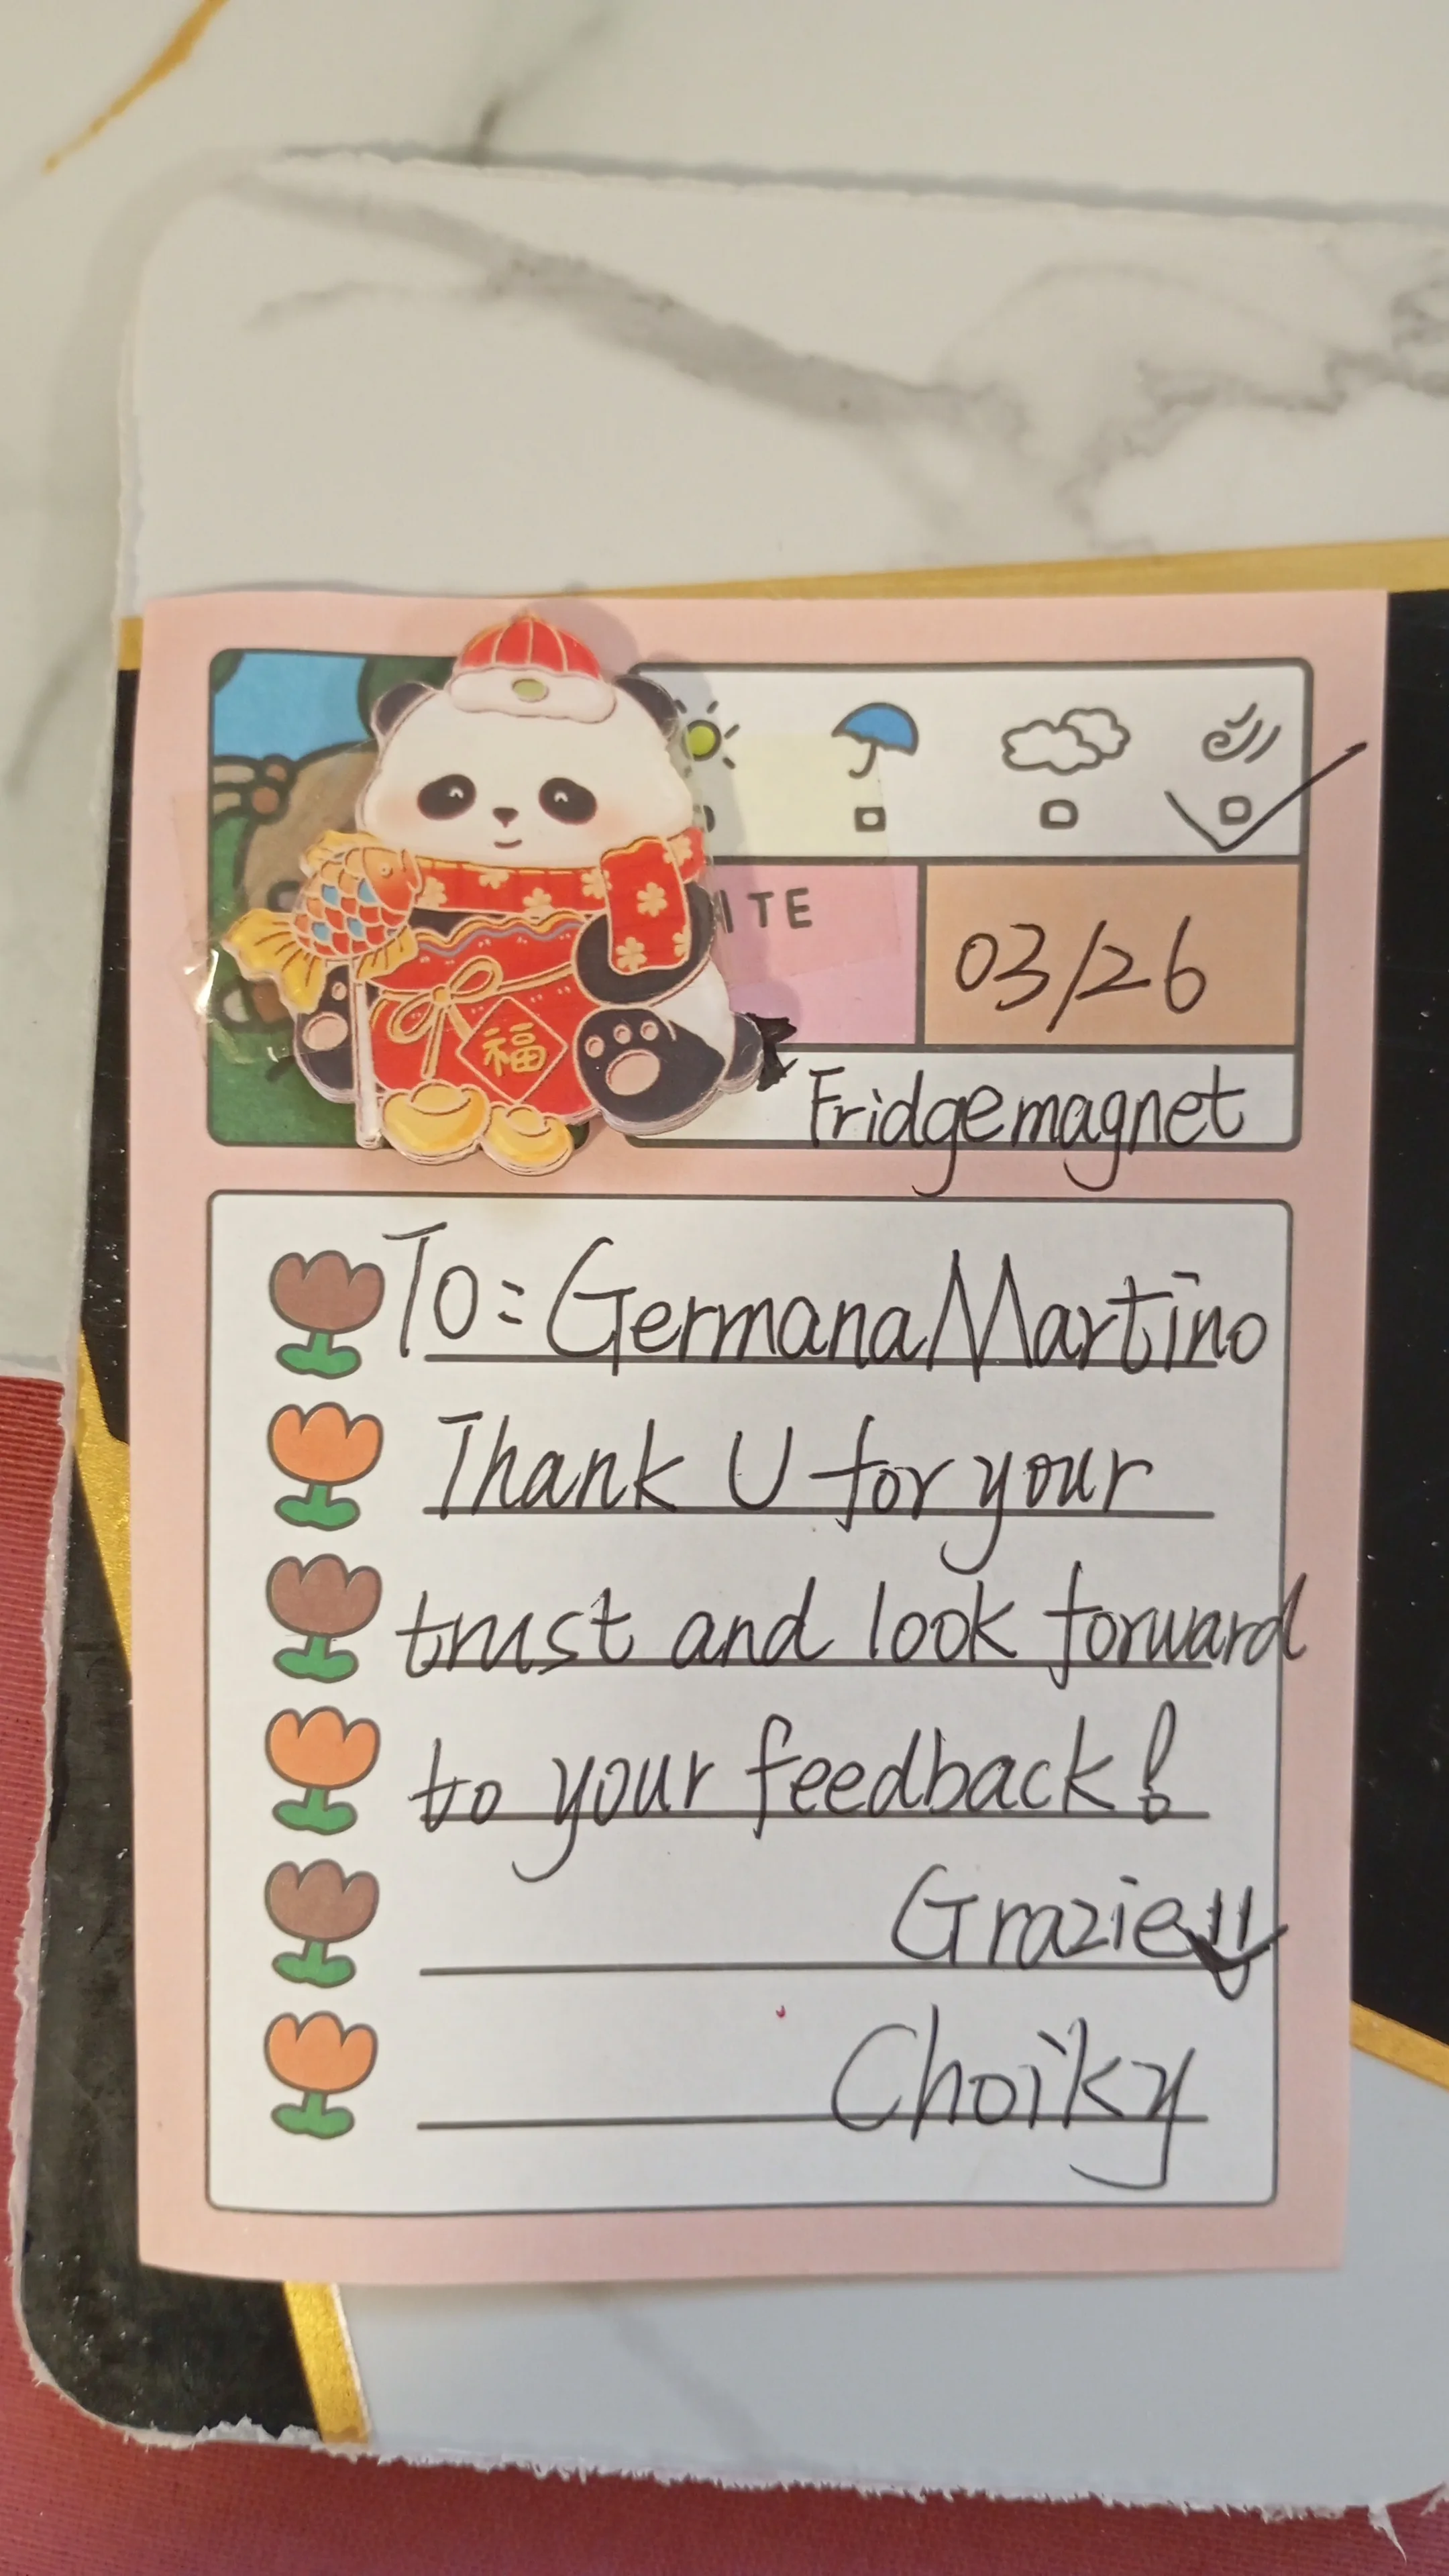 ITE
03/26
福
Fridgemagnet
To: Germana Martino
Thank U for your
trust and look forward
to your feedback!
Grazie!!
Choiky